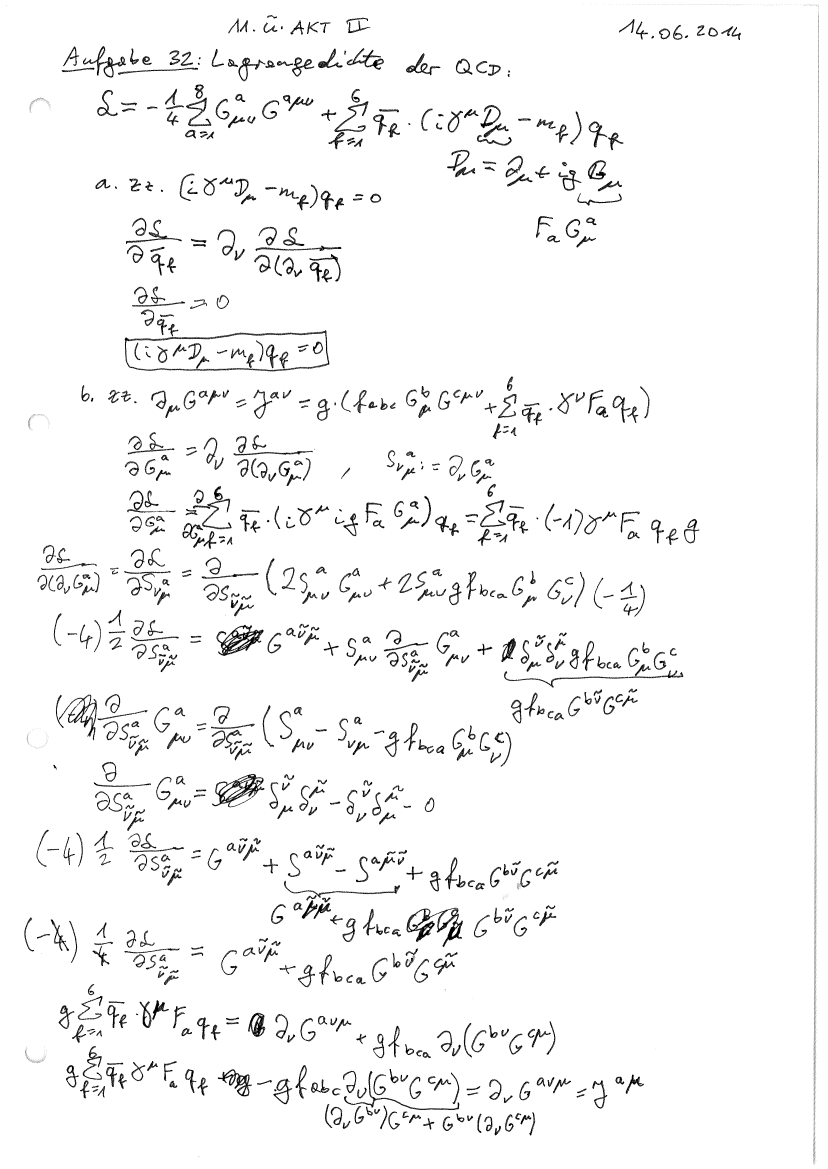 M. ü. AKT II 14.06.2014
Aufgabe 32: Lagrangedichte der QCD:
ℒ = -1/4 Σ_{a=1}^{8} G^a_{μν} G^{aμν} + Σ_{f=1}^{6} q̄_f · (iγ^μ D_μ - m_f) q_f
D_μ = ∂_μ + ig G_μ
a. zz. (iγ^μ D_μ - m_f) q_f = 0
F_a G^a_μ
∂ℒ/∂q̄_f = ∂_ν ∂ℒ/∂(∂_ν q̄_f)
∂ℒ/∂q̄_f = 0
(iγ^μ D_μ - m_f) q_f = 0
b. zz. ∂_μ G^{aμν} = J^{aν} = g·(f_{abc} G^b_μ G^{cμν} + Σ_{f=1}^{6} q̄_f · γ^ν F_a q_f)
∂ℒ/∂G^a_μ = ∂_ν ∂ℒ/∂(∂_ν G^a_μ) , S^a_{νμ} := ∂_ν G^a_μ
∂ℒ/∂G^a_μ = ∂/∂G^a_μ Σ_{f=1}^{6} q̄_f · (iγ^μ ig F_a G^a_μ) q_f = Σ_{f=1}^{6} q̄_f · (-1)γ^μ F_a q_f g
∂ℒ/∂(∂_ν G^a_μ) = ∂ℒ/∂S^a_{νμ} = ∂/∂S^a_{ν̃μ̃} (2S^a_{μν} G^a_{μν} + 2S^a_{μν} g f_{bca} G^b_μ G^c_ν) (-1/4)
(-4) 1/2 ∂ℒ/∂S^a_{ν̃μ̃} = G^{aν̃μ̃} + S^a_{μν} ∂/∂S^a_{ν̃μ̃} G^a_{μν} + δ^ν̃_μ δ^μ̃_ν g f_{bca} G^b_μ G^c_ν
g f_{bca} G^{bν̃} G^{cμ̃}
∂/∂S^a_{ν̃μ̃} G^a_{μν} = ∂/∂S^a_{ν̃μ̃} (S^a_{μν} - S^a_{νμ} - g f_{bca} G^b_μ G^c_ν)
∂/∂S^a_{ν̃μ̃} G^a_{μν} = δ^ν̃_μ δ^μ̃_ν - δ^ν̃_ν δ^μ̃_μ - 0
(-4) 1/2 ∂ℒ/∂S^a_{ν̃μ̃} = G^{aν̃μ̃} + S^{aν̃μ̃} - S^{aμ̃ν̃} + g f_{bca} G^{bν̃} G^{cμ̃}
G^{aν̃μ̃} + g f_{bca} G^{bν̃} G^{cμ̃}
(-4) 1/4 ∂ℒ/∂S^a_{ν̃μ̃} = G^{aν̃μ̃} + g f_{bca} G^{bν̃} G^{cμ̃}
g Σ_{f=1}^{6} q̄_f · γ^μ F_a q_f = ∂_ν G^{aνμ} + g f_{bca} ∂_ν (G^{bν} G^{cμ})
g Σ_{f=1}^{6} q̄_f γ^μ F_a q_f - g f_{abc} ∂_ν (G^{bν} G^{cμ}) = ∂_ν G^{aνμ} = J^{aμ}
(∂_ν G^{bν}) G^{cμ} + G^{bν} (∂_ν G^{cμ})